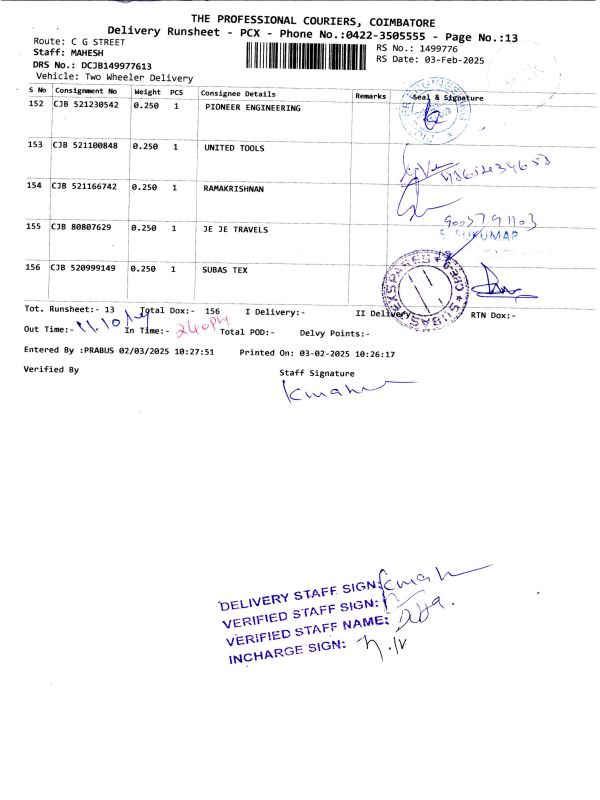 THE PROFESSIONAL COURIERS, COIMBATORE
Delivery Runsheet - PCX - Phone No.:0422-3505555 - Page No.:13
Route: C G STREET
RS No.: 1499776
Staff: MAHESH
RS Date: 03-Feb-2025
DRS No.: DCJB149977613
Vehicle: Two Wheeler Delivery
S No Consignment No Weight PCS Consignee Details Remarks Seal & Signature
152 CJB 521230542 0.250 1 PIONEER ENGINEERING
153 CJB 521100848 0.250 1 UNITED TOOLS
154 CJB 521166742 0.250 1 RAMAKRISHNAN
155 CJB 80807629 0.250 1 JE JE TRAVELS
9003791103
156 CJB 520999149 0.250 1 SUBAS TEX
Tot. Runsheet:- 13 Total Dox:- 156 I Delivery:- II Delivery:- RTN Dox:-
Out Time:- 11.10 In Time:- 2.40PM Total POD:- Delvy Points:-
Entered By :PRABUS 02/03/2025 10:27:51 Printed On: 03-02-2025 10:26:17
Verified By
Staff Signature
DELIVERY STAFF SIGN:
VERIFIED STAFF SIGN:
VERIFIED STAFF NAME:
INCHARGE SIGN: